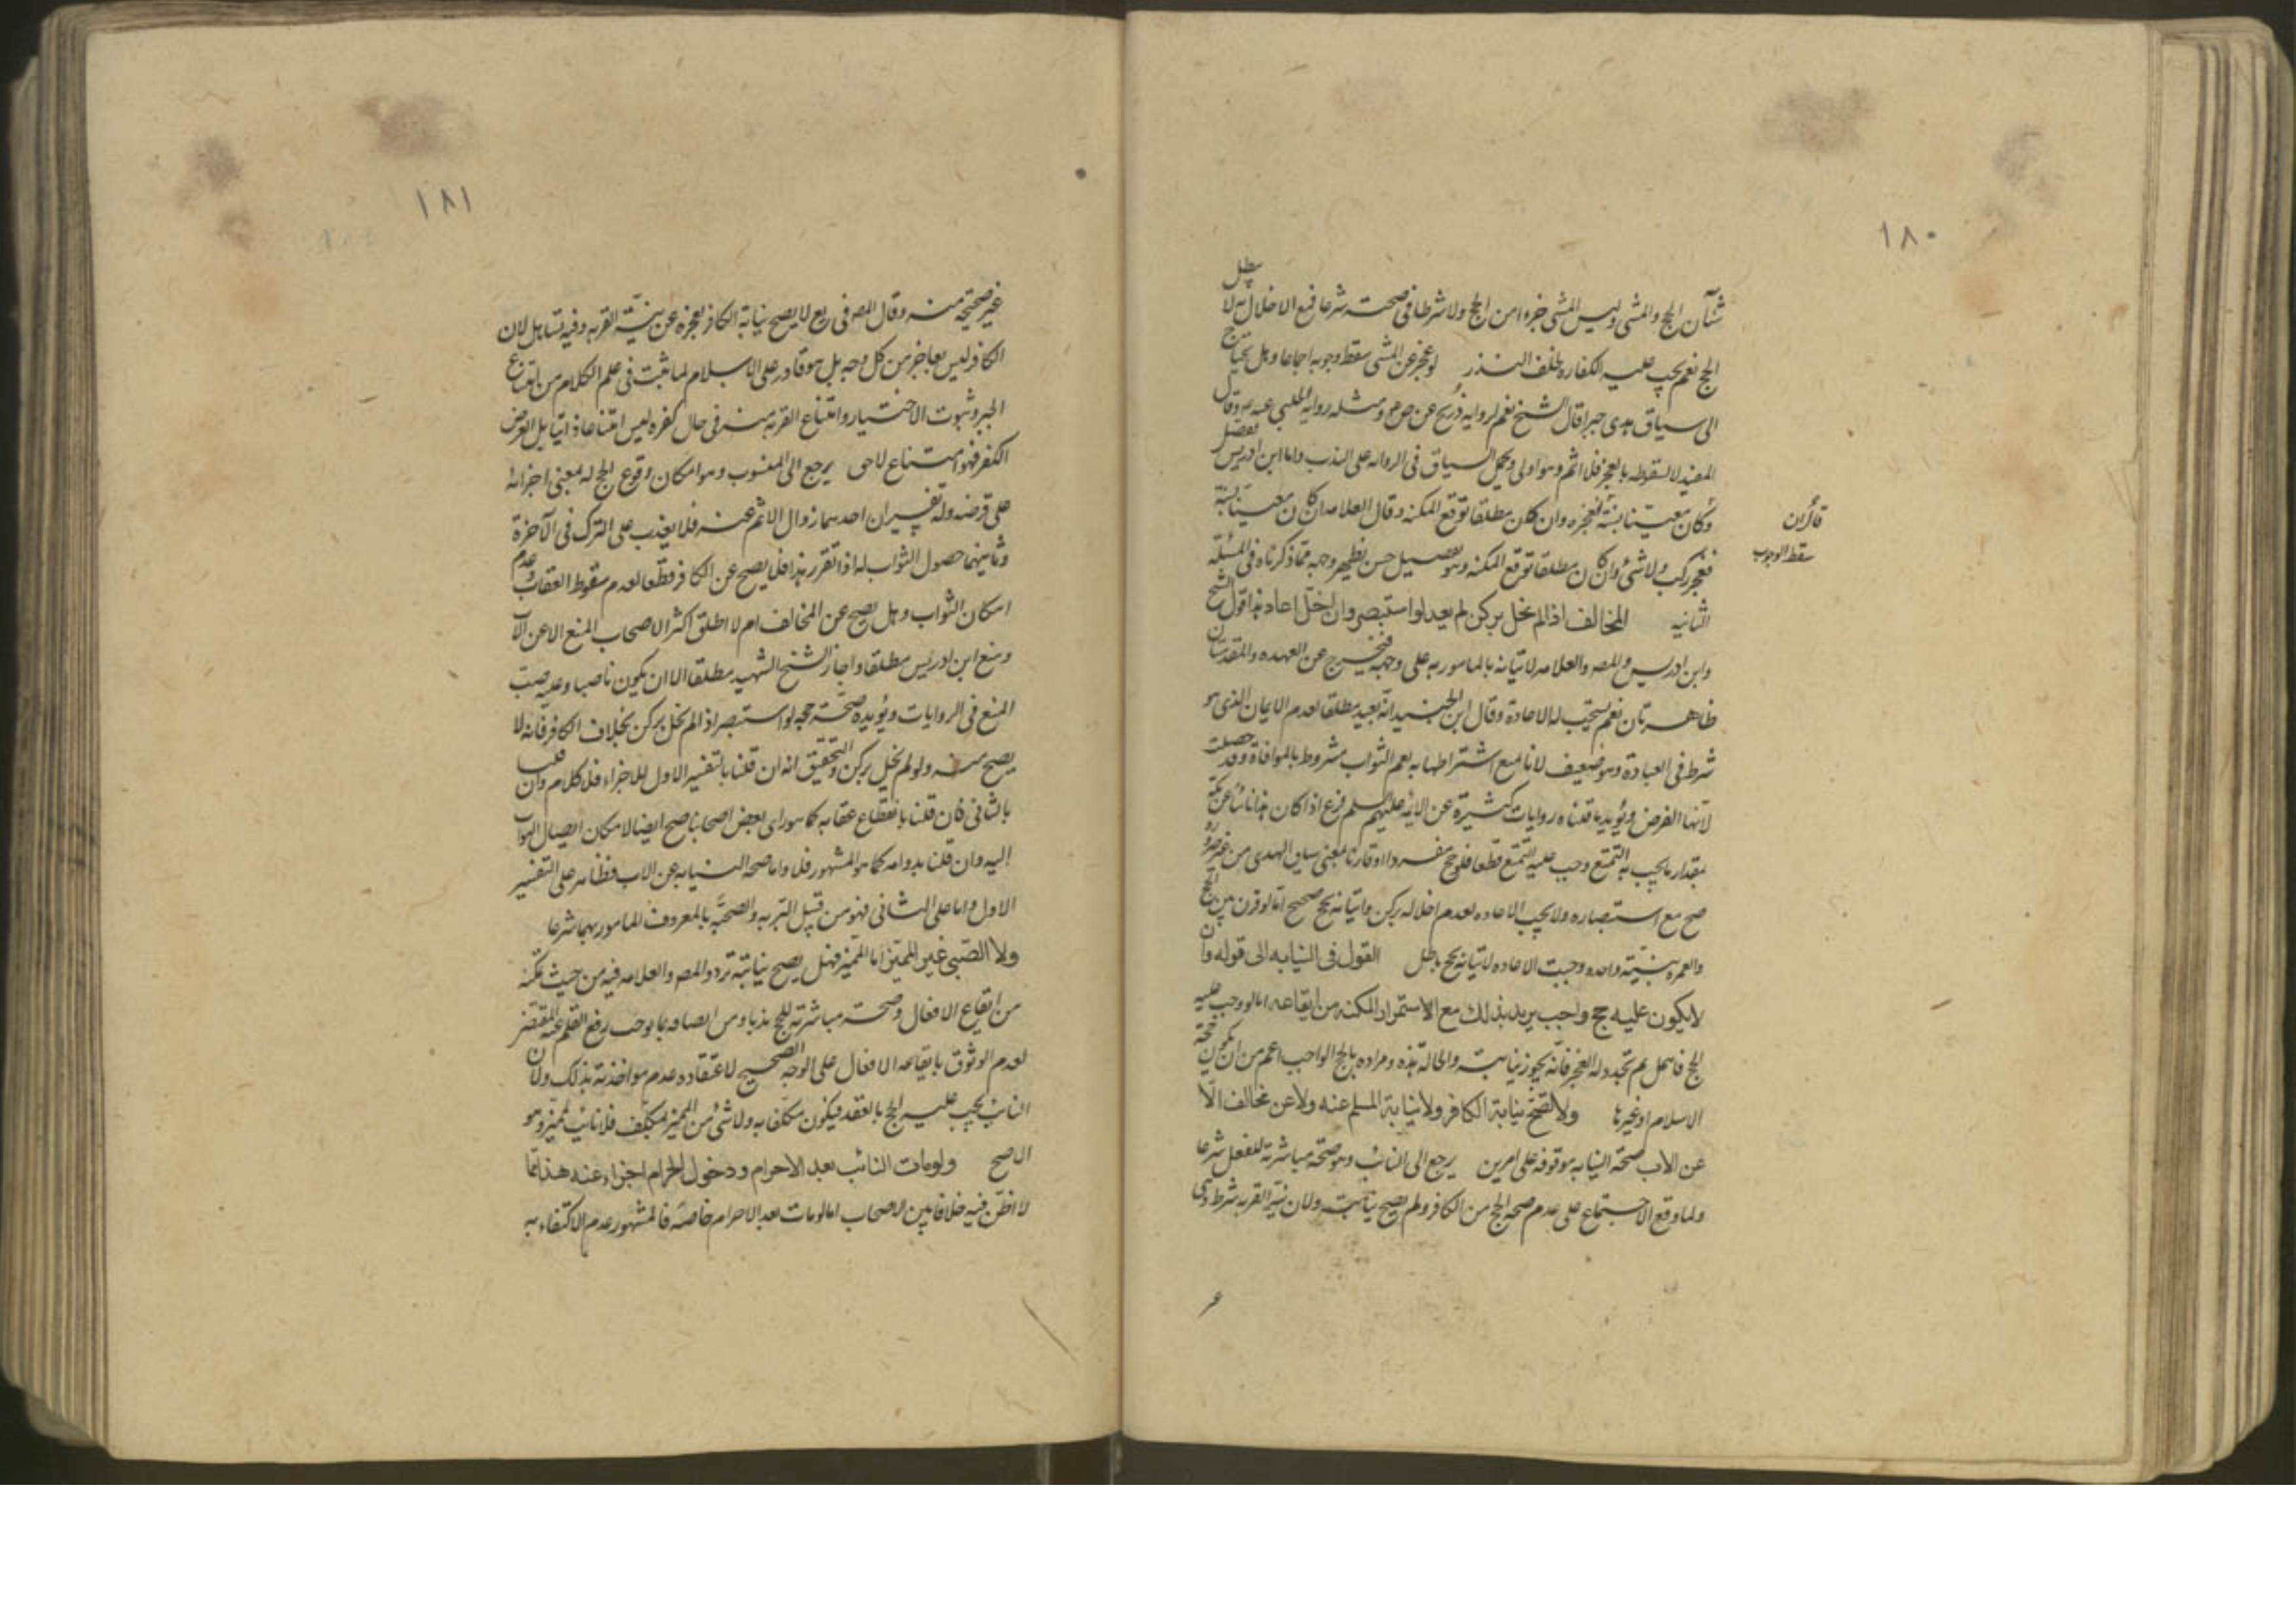 ١٨٠
شيآن الحج والمشى وليس المشى جزءا من الحج ولا شرطا فى صحته شرعا فمع الاخلال به لا يبطل
الحج نعم يجب عليه الكفاره بخلف النذر لو عجز عن المشى سقط وجوبه اجماعا وهل يحتاج
الى سياق هدى جبرا قال الشيخ نعم لروايه ذريح عن ص م ومثله روايه الحلبى عنه م وقال
المفيد لا لسقوطه بالعجز فلا اثم وهو اولى ويحمل السياق فى الروايه على الندب واما ابن ادريس ففصل
قال ان
سقط الوجوب
وكان معينا بسنة فعجزه وان كان مطلقا توقع المكنه وقال العلامه ان كان معينا بسنة
فعجز ركب ولا شئ وان كان مطلقا توقع المكنه وهو تفصيل حسن يظهر وجهه مما ذكرناه فى المسئلة
الثانيه المخالف اذا لم يخل بركن لم يعد لو استبصر وان اخل اعاد هذا قول الشيخ
وابن ادريس والمصه والعلامه لاتيانه بالمامور به على وجهه فيخرج عن العهده والمقدمتان
ظاهرتان نعم يستحب له الاعادة وقال ابن الجنيد انه يعيد مطلقا لعدم الايمان الذى هو
شرط فى العبادة وهو ضعيف لانا نمنع اشتراطها به نعم الثواب مشروط بالموافاة وقد حصلت
لانها الفرض ويؤيد ما قلناه روايات كثيرة عن الائمه عليهم السلم فرع اذا كان هذا نائيا عن مكة
بمقدار ما يجب به التمتع وجب عليه التمتع قطعا فلو حج مفردا او قارنا بمعنى سايق الهدى من غير ضرورة
صح مع استبصاره ولا يجب الاعاده لعدم اخلاله بركن واتيانه بحج صحيح اما لو قرن بين الحج
والعمره بنيته واحده وجبت الاعاده لاتيانه بحج باطل القول فى النيابه الى قوله وان
لا يكون عليه حج واجب يريد بذلك مع الاستمرار المكنه من ايقاعه اما لو وجب عليه
الحج فاهمل ثم تجدد له العجز فانه يجوز نيابته والحالة هذه ومراده بالحج الواجب اعم من ان يكون حجة
الاسلام او غيرها ولا تصح نيابة الكافر ولا نيابة المسلم عنه ولا عن مخالف الّا
عن الاب صحة النيابه موقوفه على امرين يرجع الى النائب وهو صحة مباشرته للفعل شرعا
ولما وقع الاجماع على عدم صحه الحج من الكافر ولم يصح نيابته ولان نية القربه شرط وهى
١٨١
غير صحيحة منه وقال المصه فى يع لا يصح نيابة الكافر لعجزه عن نيّة القربه وفيه تساهل لان
الكافر ليس بعاجز من كل وجه بل هو قادر على الاسلام لما ثبت فى علم الكلام من امتناع
الجبر وثبوت الاختيار وامتناع القربه منه فى حال كفره ليس امتناعا ذاتيا بل لعرض
الكفر فهو امتناع لاحق يرجع الى المنسوب وهو امكان وقوع الحج له بمعنى اجزائه
على فرضه وله تفسيران احدهما زوال الاثم عنه فلا يعذب على الترك فى الآخرة
وثانيهما حصول الثواب له اذا تقرر هذا فلا يصح عن الكافر قطعا لعدم سقوط العقاب وعدم
امكان الثواب وهل يصح عن المخالف ام لا اطلق اكثر الاصحاب المنع الا عن الاب
ومنع ابن ادريس مطلقا واجاز الشيخ الشهيد مطلقا الا ان يكون ناصبا وعليه صب
المنع فى الروايات ويؤيده صحّة حجه لو استبصر اذ لم يخل بركن بخلاف الكافر فانه لا
يصح منه ولو لم يخل بركن والتحقيق انه ان قلنا بالتفسير الاول للاجزاء فلا كلام وان قلنا
بالثانى فان قلنا بانقطاع عقابه كما هو راى بعض اصحابنا صح ايضا لامكان ايصال الثواب
اليه وان قلنا بدوامه كما هو المشهور فلا واما صحه النيابه عن الاب فظاهر على التفسير
الاول واما على الثانى فهو من قبيل البر به والصحبة بالمعروف المامور بهما شرعا
ولا الصّبى غير المميّز اما المميّز فهل يصح نيابته تردد المصه والعلامه فيه من حيث تمكّنه
من ايقاع الافعال وصحته مباشرته للحج ندبا ومن اتصافه بما يوجب رفع القلم عنه المقتضى
لعدم الوثوق بايقاعه الافعال على الوجه الصحيح لاعتقاده عدم مؤاخذته بذلك ولان
النائب يجب عليه الحج بالعقد فيكون مكلفا به ولا شئ من المميز بمكلف فلا نائب بمميز وهو
الاصح ولو مات النائب بعد الاحرام ودخول الحرام اجزاء عنه هذا ممّا
لا اظن فيه خلافا بين الاصحاب اما لو مات بعد الاحرام خاصة فالمشهور عدم الاكتفاء به